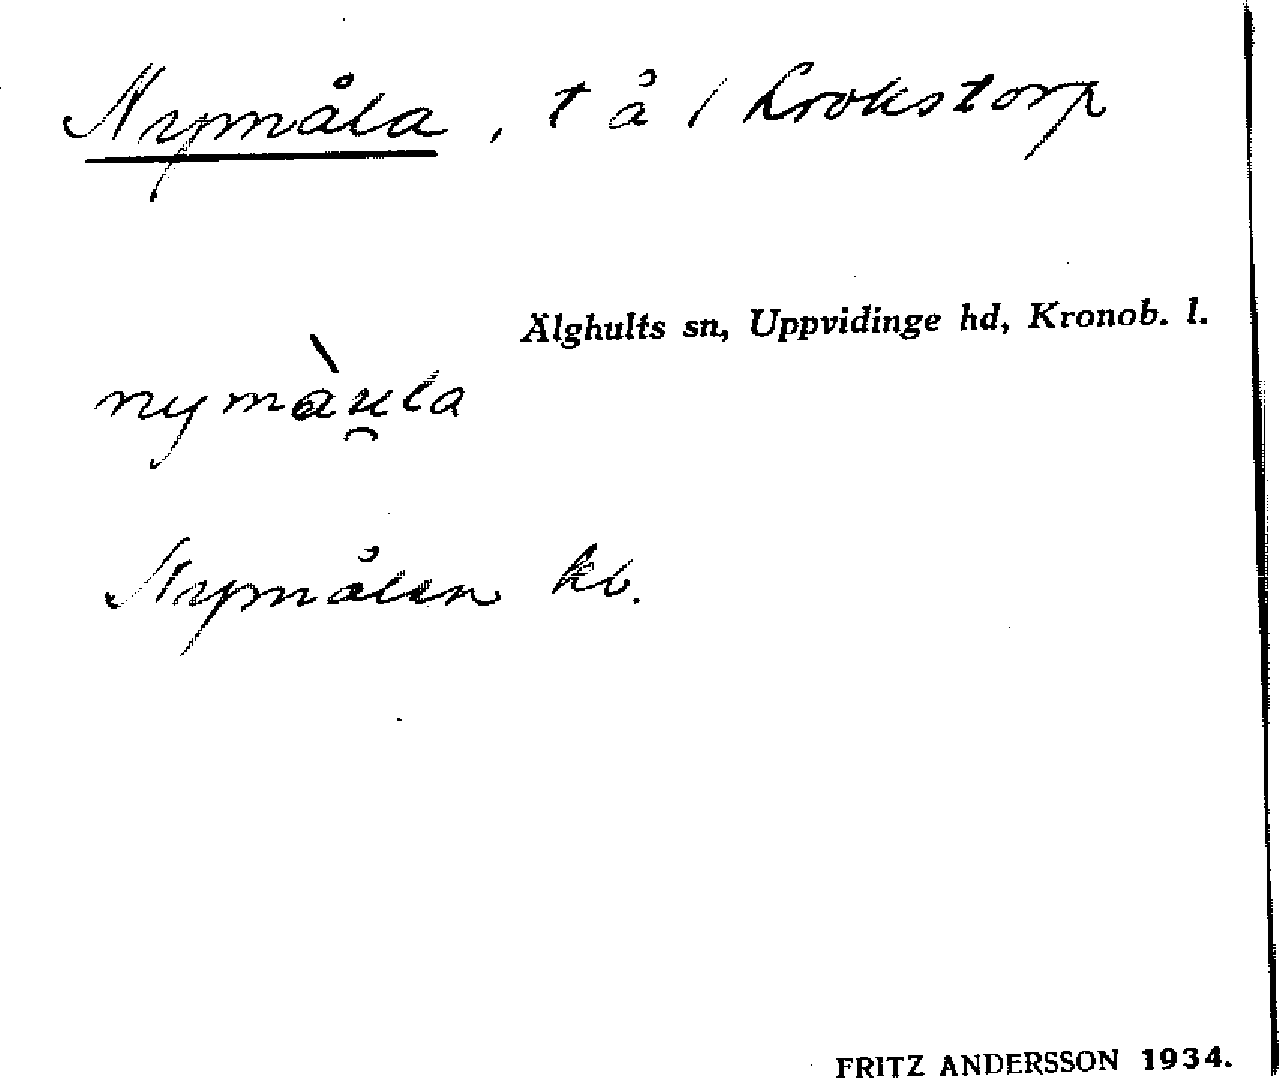 Nymåla, t å / Krokstorp
Älghults sn, Uppvidinge hd, Kronob. l.
nymàu̯la
Nymålen kb.
FRITZ ANDERSSON 1934.